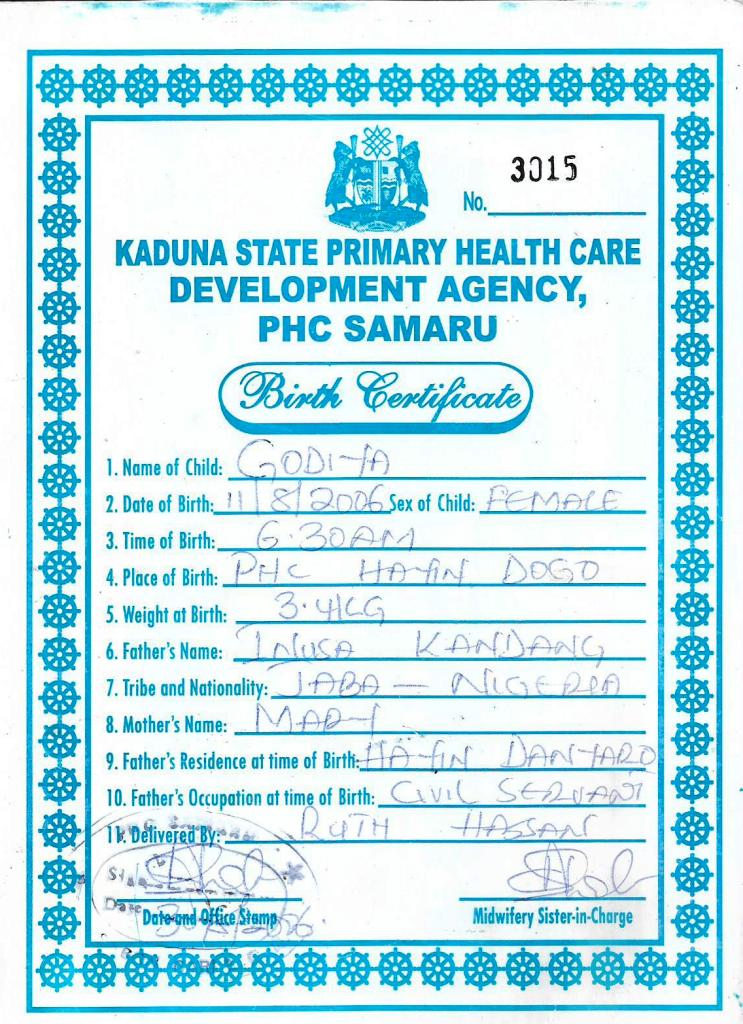 3015
No.
KADUNA STATE PRIMARY HEALTH CARE
DEVELOPMENT AGENCY,
PHC SAMARU
Birth Certificate
1. Name of Child: GODIYA
2. Date of Birth: 11/8/2006 Sex of Child: FEMALE
3. Time of Birth: 6.30AM
4. Place of Birth: PHC HAYIN DOGO
5. Weight at Birth: 3.4KG
6. Father's Name: INUSA KANDANG
7. Tribe and Nationality: JABA - NIGERIA
8. Mother's Name: MARY
9. Father's Residence at time of Birth: HAYIN DANYARO
10. Father's Occupation at time of Birth: CIVIL SERVANT
11. Delivered By: RUTH HASSAN
Date
Date and Office Stamp Midwifery Sister-in-Charge